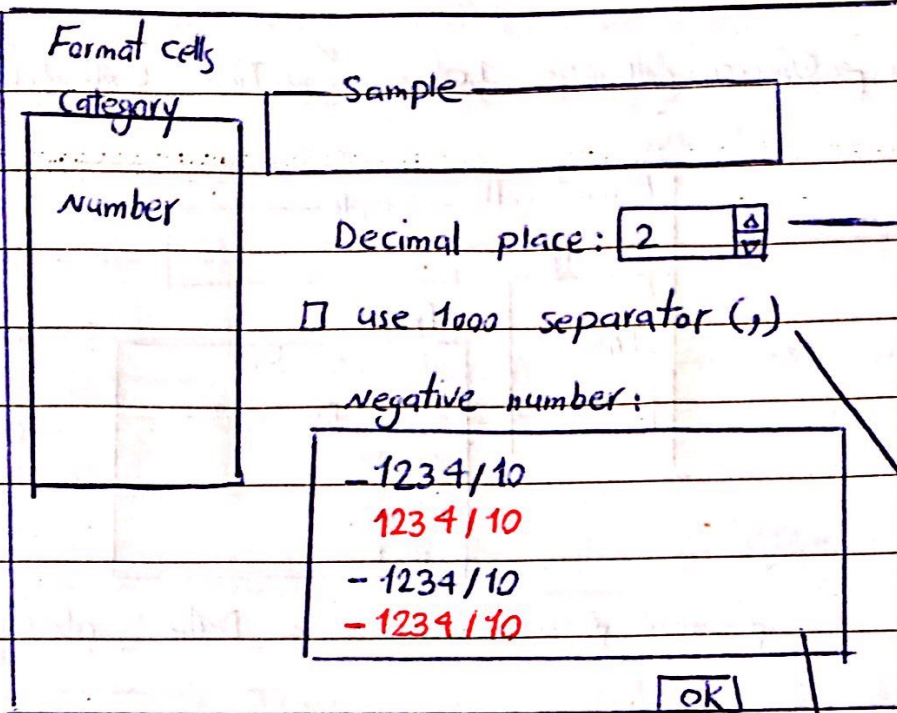 Format cells
Category
Sample
Number
Decimal place: 2
use 1000 separator (,)
Negative number:
-1234/10
1234/10
-1234/10
-1234/10
OK